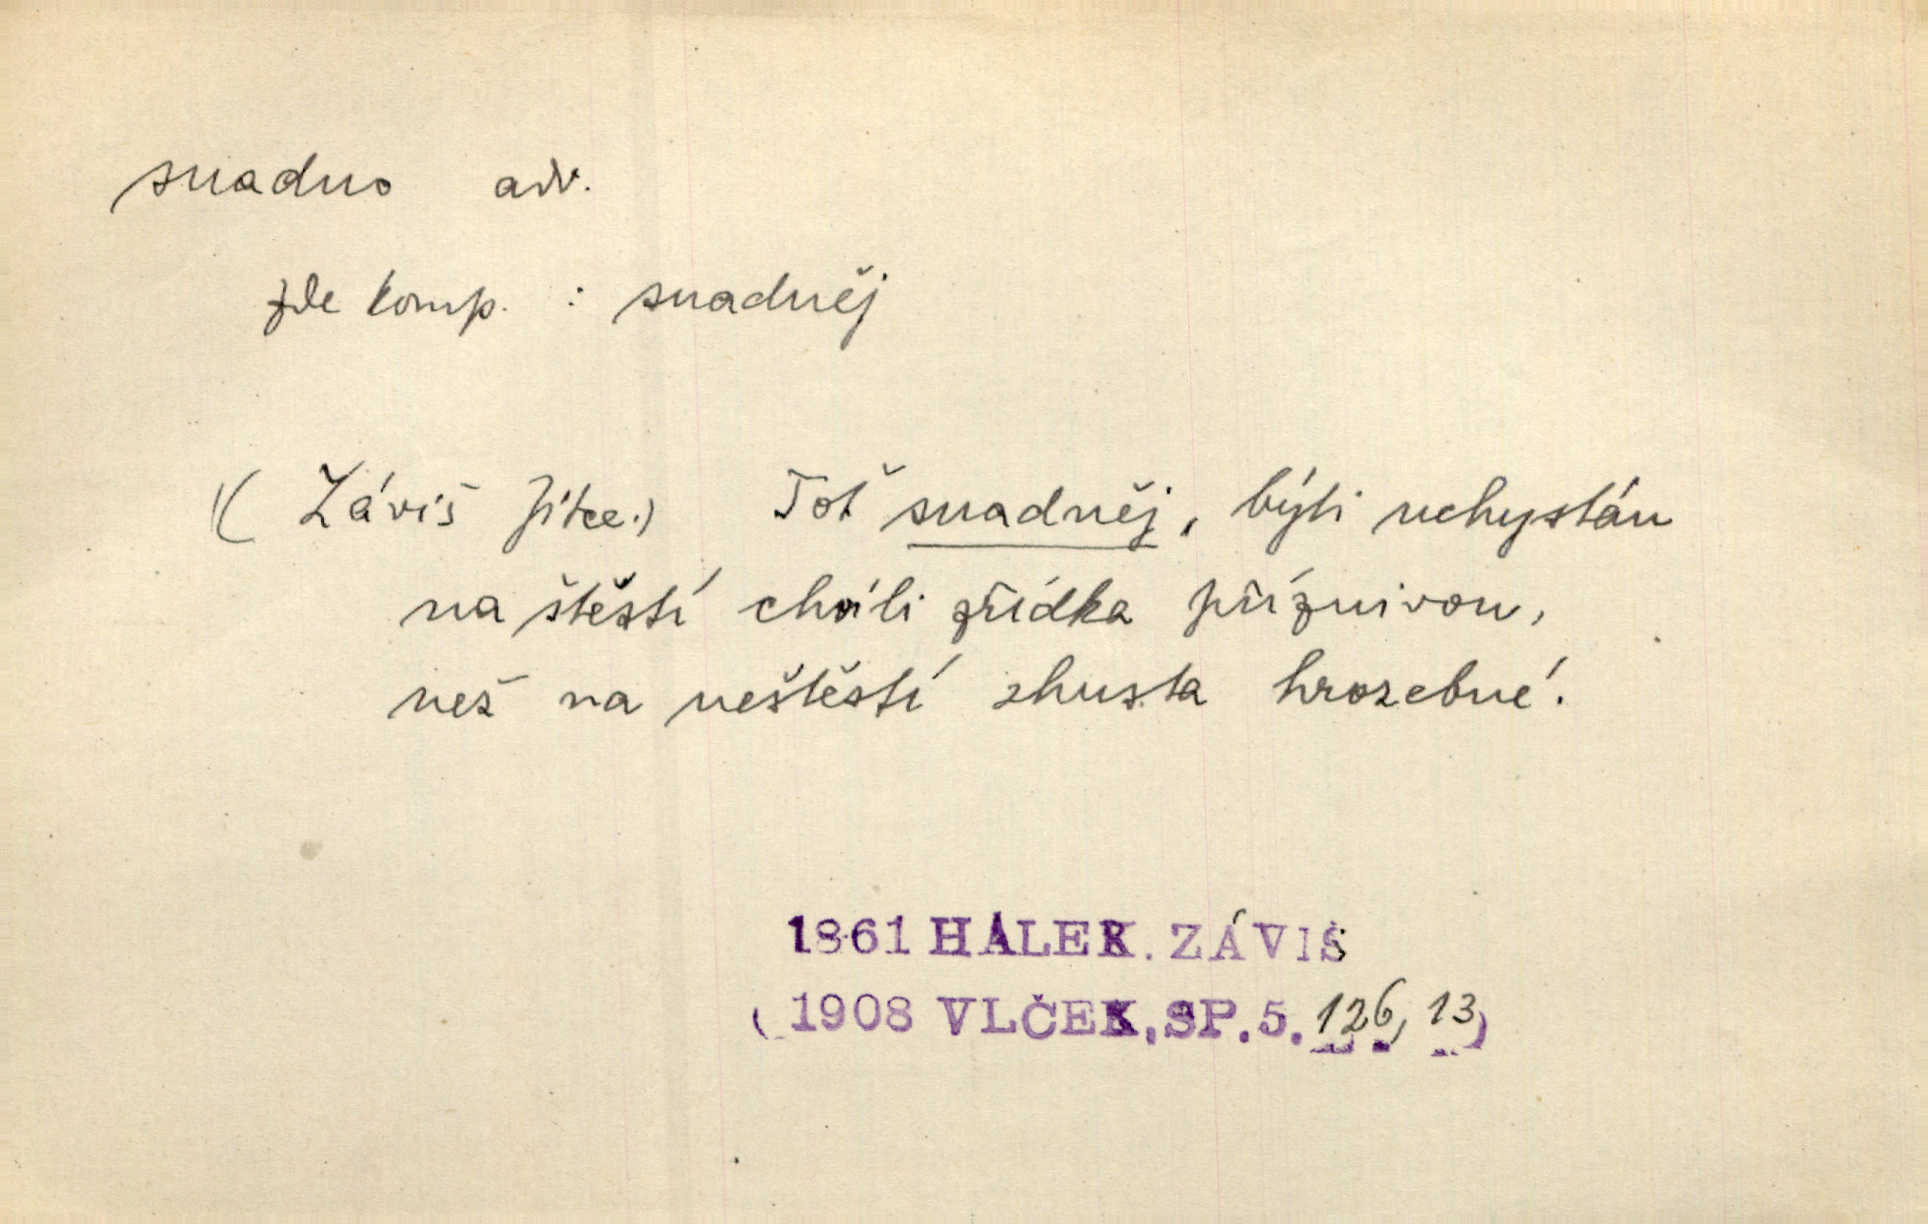 snadno adv.
zde komp. : snadněj
(Záviš Jitce.) Toť snadněj, býti uchystán
na štěstí chvíli zřídka příznivou,
než na neštěstí zhusta hrozebné.
1861 HÁLEK. ZÁVIŠ
(1908 VLČEK, SP. 5. 126, 13)